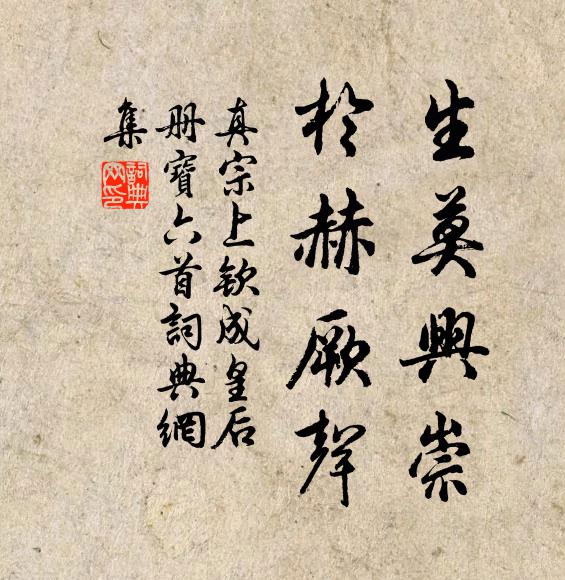 生莫興崇
於赫厥聲
真宗上欽成皇后
冊寶六首詞典網
集
詞典
网印